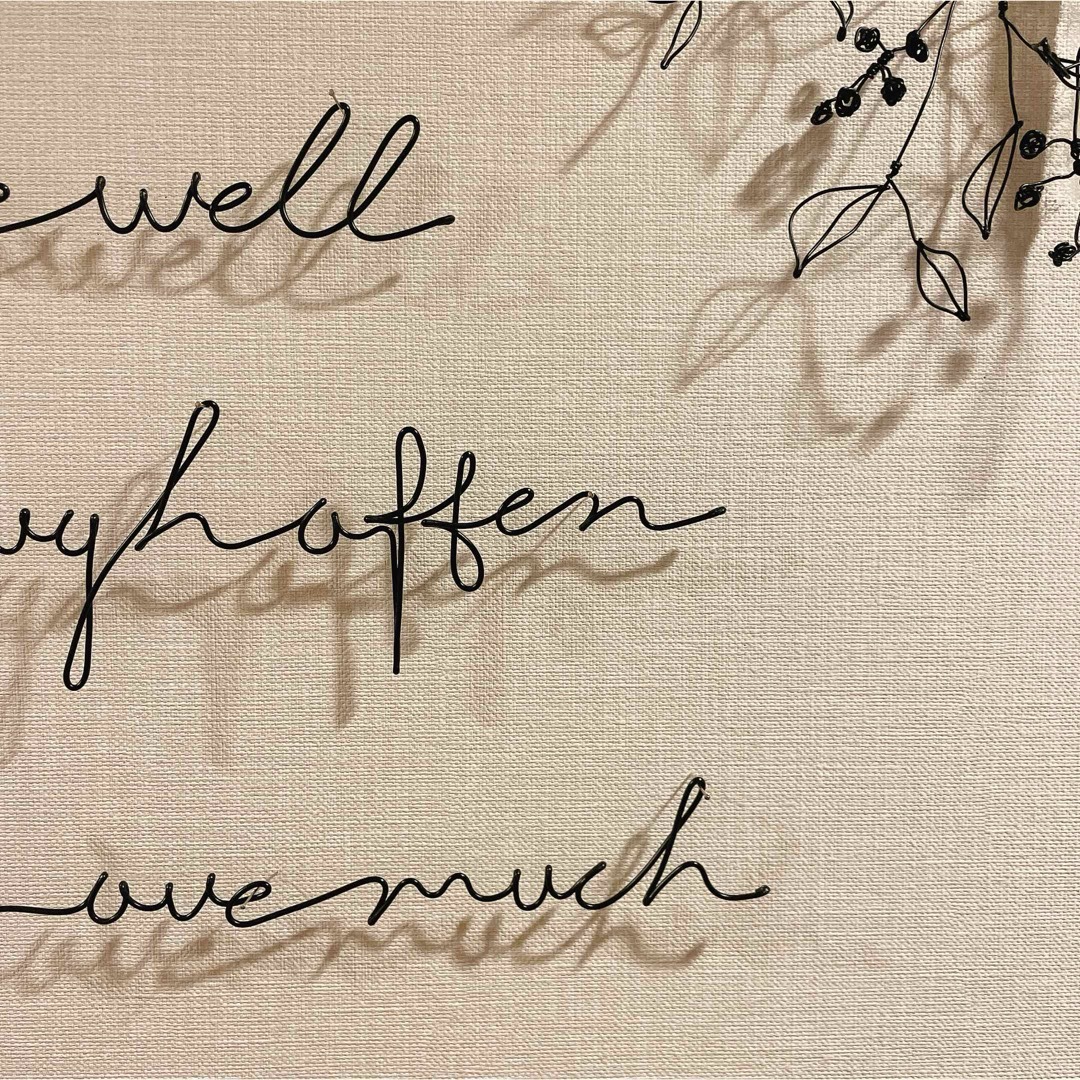 e well
ugh often
ove much